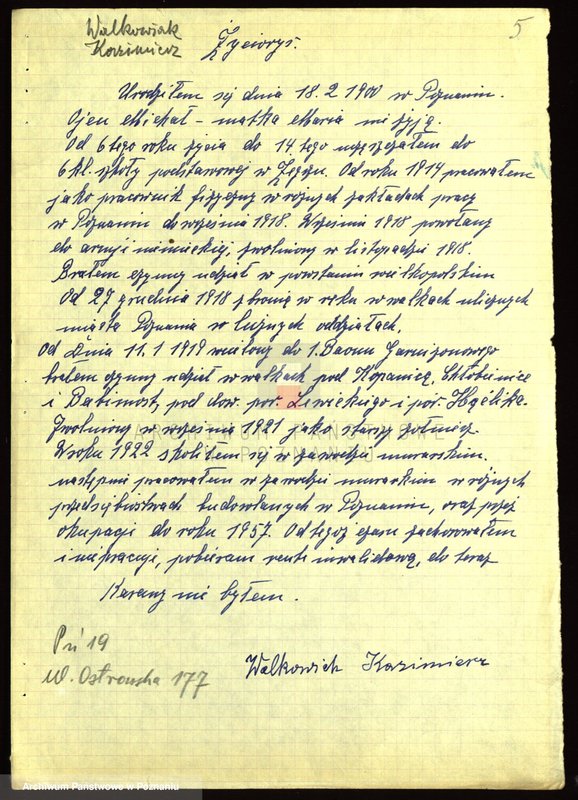 5
Walkowiak
Kazimierz
Życiorys.
Urodziłem się dnia 18.2 1900 w Poznaniu.
Ojciec Michał – matka Maria nie żyją.
Od 6tego roku życia do 14 tego uczęszczałem do
6 kl. szkoły podstawowej w Żegrzu. Od roku 1914 pracowałem
jako pracownik fizyczny w różnych zakładach pracy
w Poznaniu do września 1918. Wrześniu 1918 powołany
do armji niemieckiej, zwolniony w listopadzie 1918.
Brałem czynny udział w powstaniu wielkopolskim
Od 27 grudnia 1918 z bronią w ręku w walkach ulicznych
miasta Poznania w luźnych oddziałach.
Od Dnia 11.1 1919 wcielony do 1. Baonu Garnizonowego
brałem czynny udział w walkach pod Kopanicą, Chłobienice
i Babimost, pod dow. por. Lewickiego i por.
Zwolniony w wrześniu 1921 jako starszy żołnierz.
W roku 1922 szkoliłem się w zawodzie murarskim.
następnie pracowałem w zawodzie murarskim w różnych
przedsiębiorstwach budowlanych w Poznaniu, oraz przez
okupacji do roku 1957. Od tegoż czasu zachorowałem
i nie pracuję, pobieram rente inwalidzową, do teraz
Karany nie byłem.
19
Ul. Ostrowska 177
Walkowiak Kazimierz
ARCHIWUM PAŃSTWOWE
W POZNANIU
Archiwum Państwowe w Poznaniu